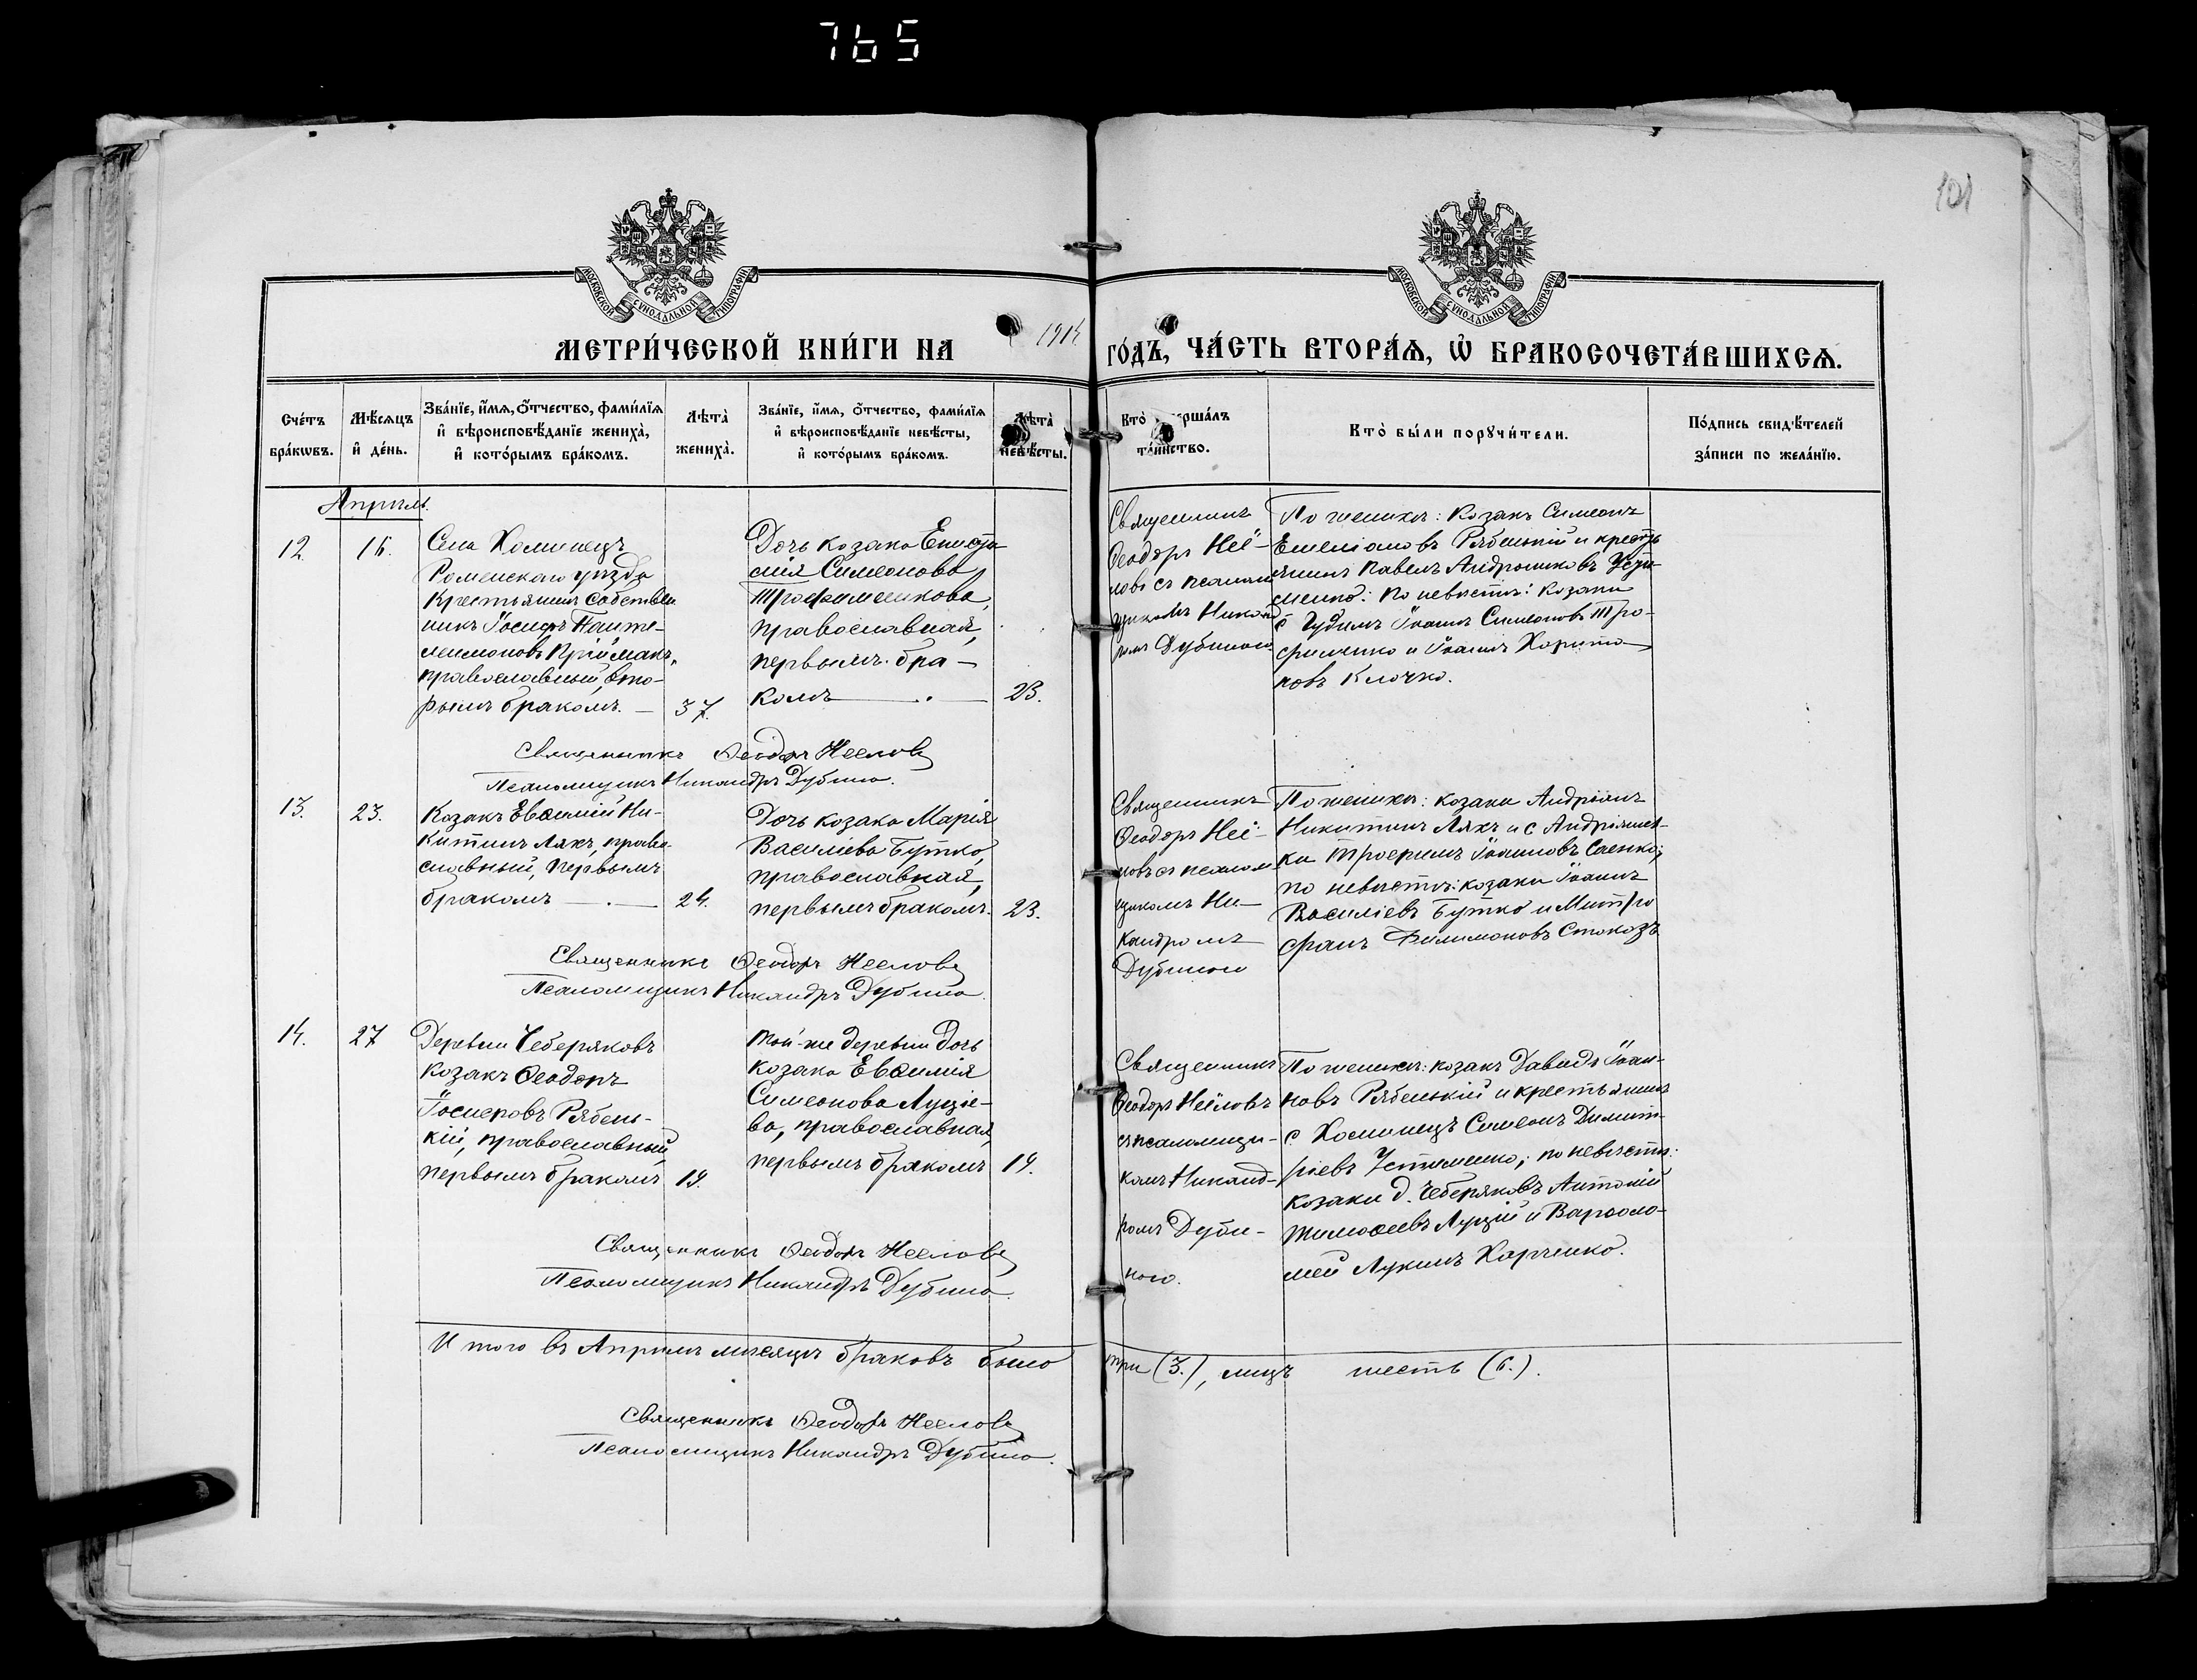 765
101
МОСКОВСКОЙ СѴНОДАЛЬНОЙ ТИПОГРАФІИ
МОСКОВСКОЙ СѴНОДАЛЬНОЙ ТИПОГРАФІИ
МЕТРИ́ЧЕСКОЙ КНИ́ГИ НА 1914 ГО́ДЪ, ЧА́СТЬ ВТОРА́Ѧ, Ѡ҆ БРАКОСОЧЕТА́ВШИХСѦ.
Сче́тъ
бра́кѡвъ.
Мѣ́сѧцъ
и҆ де́нь.
Зва́нїе, и҆́мѧ, ѻ҆́тчество, фами́лїѧ
и҆ вѣроисповѣ́данїе жениха̀,
и҆ кото́рымъ бра́комъ.
Лѣта̀
жениха̀.
Зва́нїе, и҆́мѧ, ѻ҆́тчество, фами́лїѧ
и҆ вѣроисповѣ́данїе невѣ́сты,
и҆ кото́рымъ бра́комъ.
Лѣта̀
невѣ́сты.
Кто̀ ршалъ
та́инство.
Кто̀ бы́ли порꙋчи́тели.
По́дпись свидѣ́телей
за́писи по жела́нїю.
Апрѣль.
12. 16.
Села Хоминецъ
Роменскаго уѣзда
Крестьянинъ собствен
никъ Іосифъ Панте-
леимоновъ Пріймакъ,
православный, вто-
рымъ бракомъ. — 37.
Дочь козака Еписта
мія Симеонова
Трофименкова,
православная,
первымъ бра-
комъ — 23.
Священникъ
Ѳеодоръ Неѣ-
ловъ съ псалом
щикомъ Никан
ромъ Дубиною
По женихѣ: Козакъ Симеонъ
Емеліановъ Рябенькій и кресть
янинъ Павелъ Андрониковъ Усти
менко: по невѣстѣ: козаки
с Чудимъ Іоаннъ Симеоновъ Тро-
фименко и Іоаннъ Харито
новъ Клочко.
Священникъ Ѳеодоръ Неелов
Псаломщикъ Никандръ Дубина.
13. 23.
Козакъ Евѳимій Ни-
китинъ Ляхъ, право
славный, первымъ
бракомъ — 24.
Дочь козака Марія
Василіева Бутко,
православная,
первымъ бракомъ. 23.
Священникъ
Ѳеодоръ Неѣ-
ловъ съ псалом
щикомъ Ни-
кандромъ
Дубиною
По женихѣ: козаки Андріанъ
Никитинъ Ляхъ и с Андріяшев-
ки Трофимъ Іоанновъ Саенко;
по невѣстѣ: козаки Іоаннъ
Василіевъ Бутко и Митро
фанъ Филимоновъ Стокозъ
Священникъ Ѳеодоръ Неелов
Псаломщикъ Никандръ Дубина.
14. 27
Деревни Чеберяковъ
Козакъ Ѳеодоръ
Іосифовъ Рябень-
кій, православный,
первымъ бракомъ 19.
Той-же деревни дочь
козака Евѳимія
Симеонова Луціе-
ва, православная,
первымъ бракомъ 19.
Священникъ
Ѳеодоръ Неѣловъ
съ псаломщи-
комъ Никанд-
ромъ Дуби-
ною.
По женихѣ: козакъ Давидъ Іоан-
новъ Рябенькій и крестьянинъ
с. Хоминецъ Симеонъ Димит-
ріевъ Устименко; по невѣстѣ:
козаки д. Чеберяковъ Антоній
Тимоѳеевъ Луцій и Варѳоло-
мей Лукинъ Харченко.
Священникъ Ѳеодоръ Неелов
Псаломщикъ Никандръ Дубина.
Итого въ Апрѣлѣ мѣсяцѣ браковъ было три (3.), лицъ шесть (6.).
Священникъ Ѳеодоръ Неелов
Псаломщикъ Никандръ Дубина.